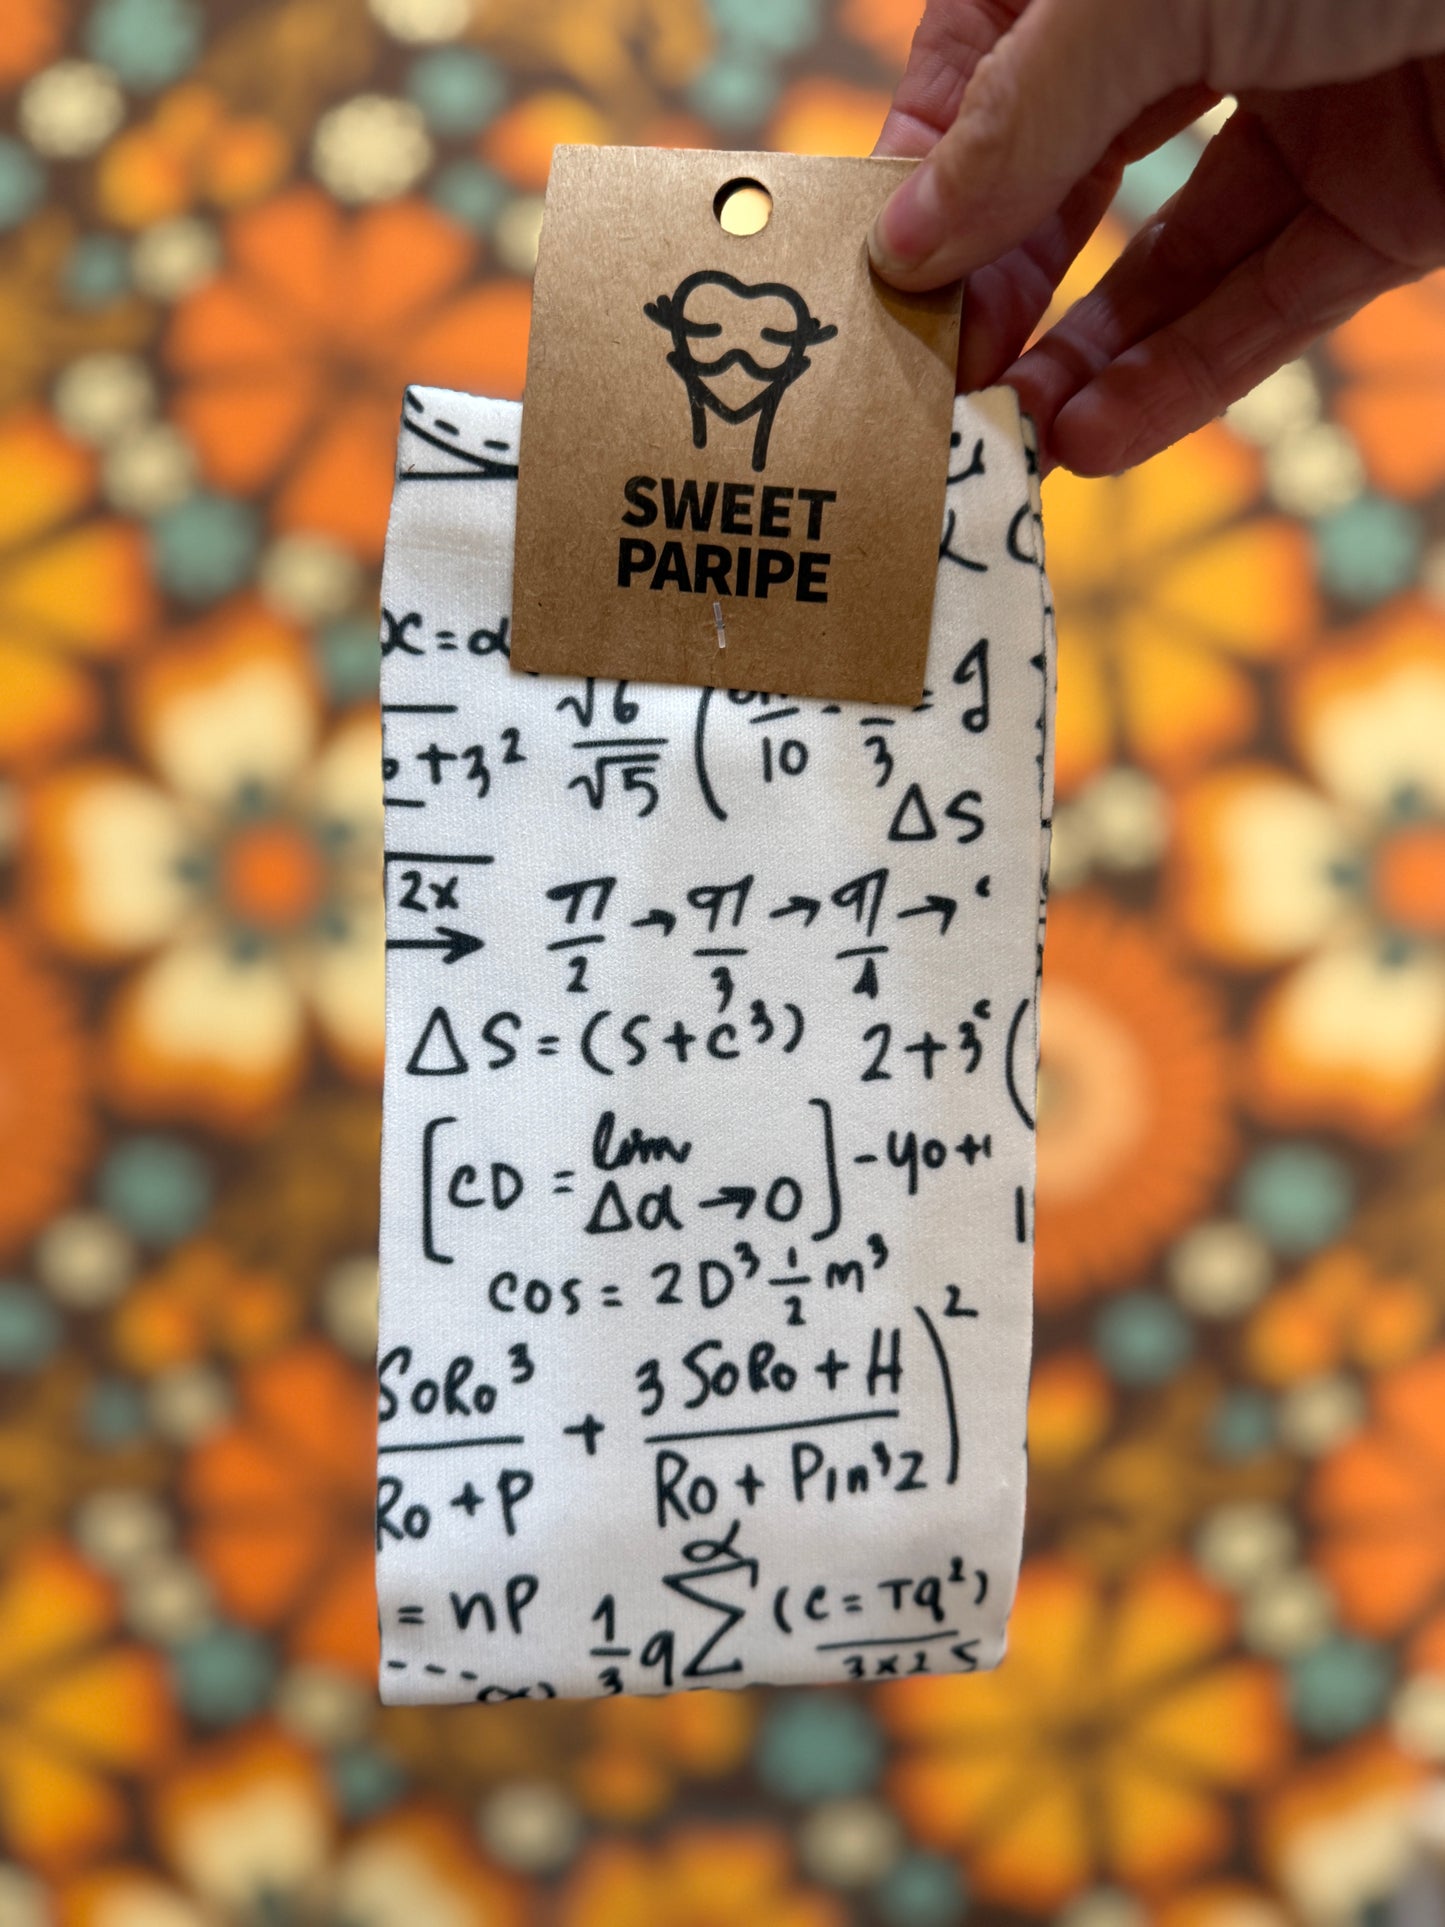 SWEET
PARIPE
x=α
√6
√5
10
3
= g
+3²
ΔS
2x
π/2 → π/3 → π/4 →
ΔS=(S+c³) 2+3ᶜ (
[CD = lim Δα→0] -yo+1
cos = 2D³ 1/2 m³
SoRo³ / Ro+P + 3SoRo+H / Ro+Pin³z )²
= np 1/3 q α∑ (c=Tq²) / 3x2S